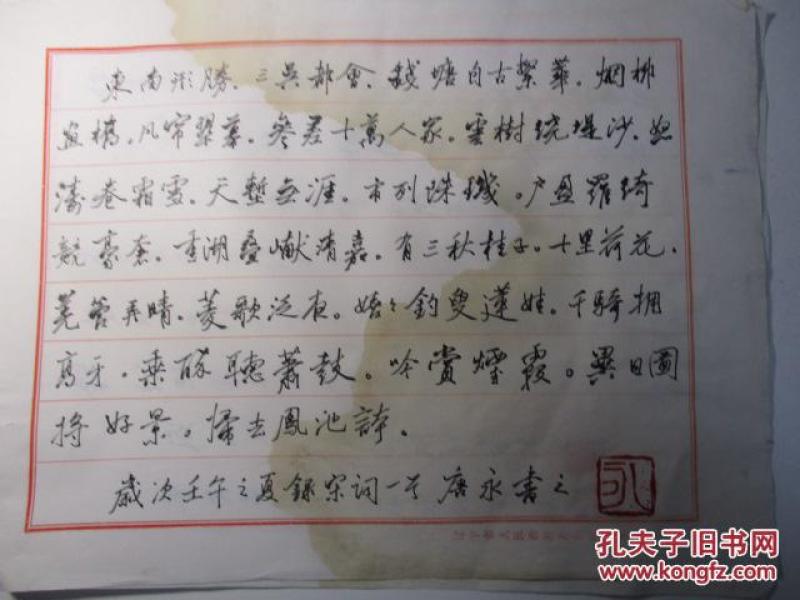 東南形勝、三吴都會、錢塘自古繁華。烟柳
画橋。风帘翠幕。參差十萬人家。雲樹绕堤沙。怒
濤卷霜雪。天塹無涯。市列珠璣。户盈羅綺
競豪奢。重湖疊巘清嘉。有三秋桂子。十里荷花。
羌管弄晴。菱歌泛夜。嬉々釣叟蓮娃。千騎拥
高牙。乘酔聽蕭鼓。吟赏煙霞。異日圖
将好景。帰去鳳池誇。
歲次壬午之夏錄宋词一首 唐永書之
永
孔夫子旧书网
www.kongfz.com